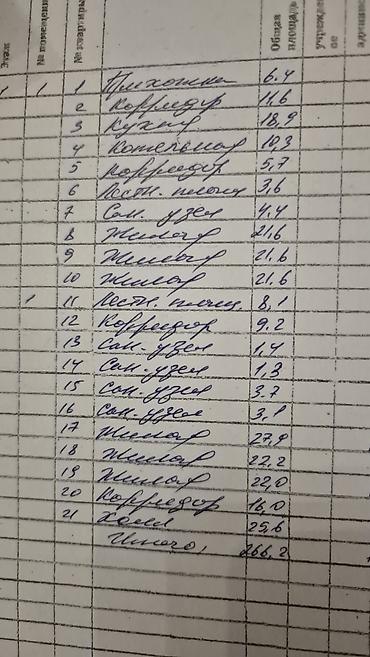 Этаж № помещения № квартиры Общая площадь учрежден ие
1 1 1 Прихожая 6.4
2 Корридор 11,6
3 Кухня 18,9
4 Котельная 10,3
5 Корридор 5,7
6 Лестн. площ 3,6
7 Сан. узел 4.4
8 Жилая 21,6
9 Жилая 21.6
10 Жилая 21.6
11 Лестн. площ. 8,1
12 Корридор 9.2
13 Сан. узел 1,4
14 Сан. узел 1,3
15 Сан. узел 3.7
16 Сан. узел 3,1
17 Жилая 27,9
18 Жилая 22,2
19 Жилая 22,0
20 Корридор 16,0
21 Холл 25,6
Итого, 266,2